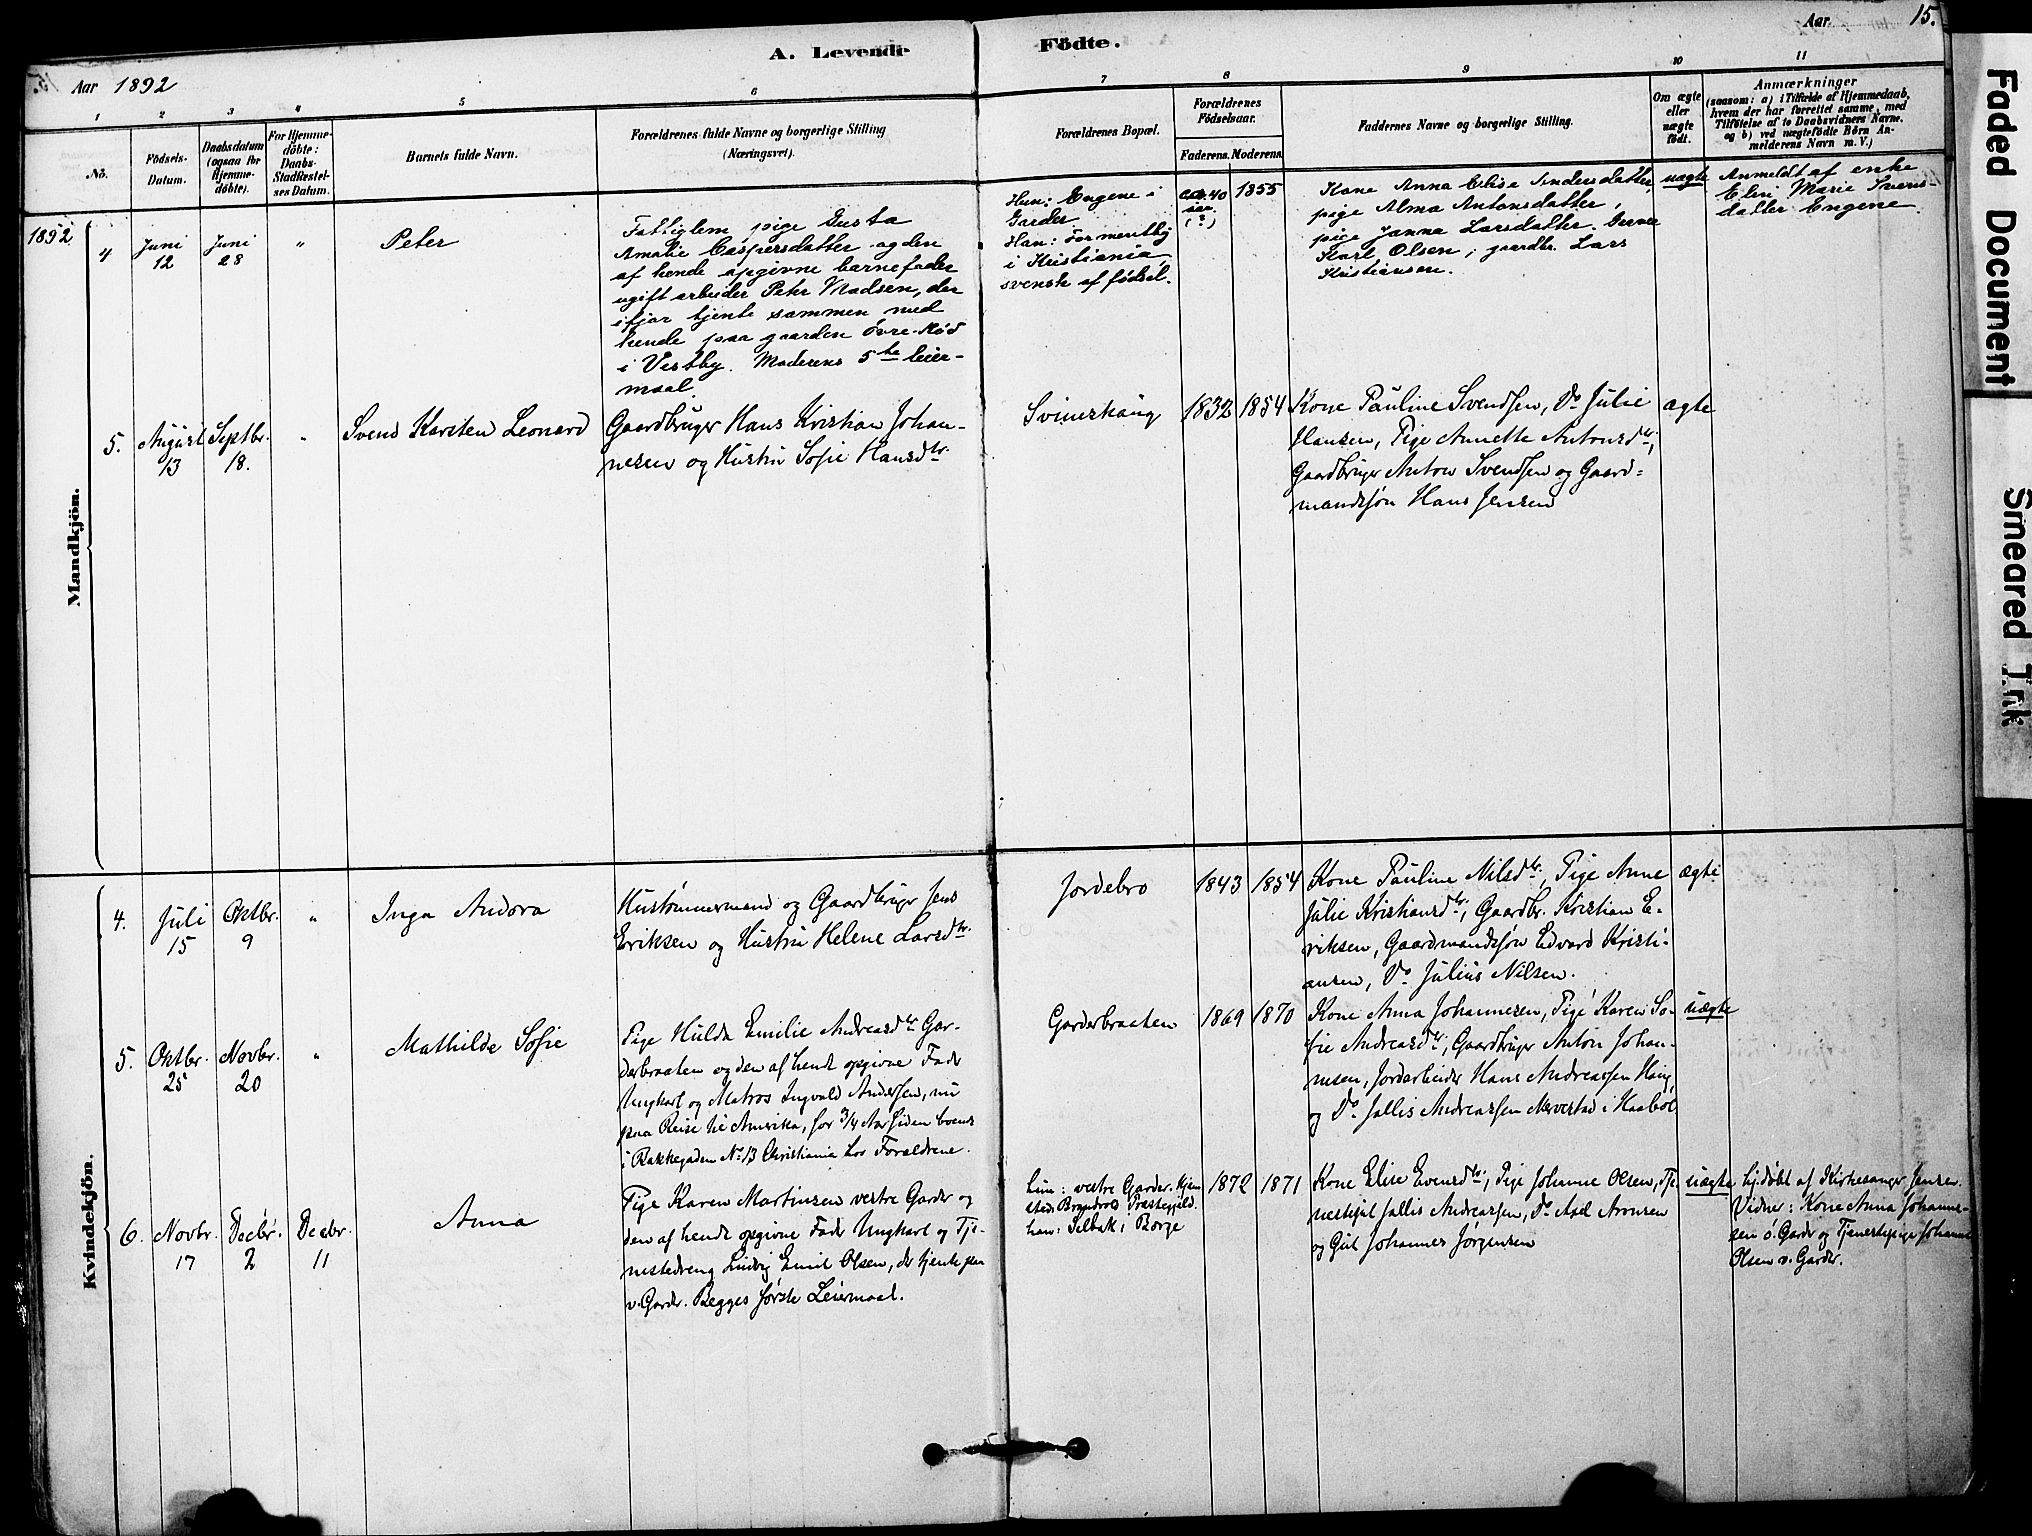 A. Levende Födte.
Aar 1892
Aar 15.
1 2 3 4 5 6 7 8 9 10 11
No.
Födsels-
Datum.
Daabsdatum
(ogsaa for
Hjemme-
döbte).
For Hjemme-
döbte:
Daabs-
Stadfæstel-
ses Datum.
Barnets fulde Navn.
Forældrenes fulde Navne og borgerlige Stilling
(Næringsvei).
Forældrenes Bopæl.
Forældrenes
Födselsaar.
Faderens. Moderens.
Faddernes Navne og borgerlige Stilling.
Om ægte
eller
uægte
født.
Anmærkninger
(saasom: a) i Tilfælde af Hjemmedaab,
hvem der har forrettet samme, med
Tilföielse af to Daabsvidners Navne.
og b) ved uægtefödte Börn An-
melderens Navn m. V.)
Mandkjön.
1892
4
Juni
12
Juni
28
"
Peter
Fattiglem pige Gusta
Amalie Caspersdatter og den
af hende opgivne barnefader
ugift arbeider Peter Madsen, der
ifjor tjente sammen med
hende paa gaarden Övre-Köd
i Vestby. Moderens 5te leier-
maal.
Hun: Engene i
Garder
Han: Formentlig
i Kristiania,
svensk af födsel.
40
(?)
1855
Kone Anna Elise Andersdatter,
pige Alma Antonsdatter,
pige Janna Larsdatter.
Karl Olsen, gaardbr. Lars
Kristiansen.
uægte
Anmeldt af enke
Elen Marie Svens-
datter Engene
5.
August
13
Septbr.
18.
"
Svend Karsten Leonard
Gaardbruger Hans Kristian Johan-
nesen og Hustru Sofie Hansdtr.
Svinerhaug
1832
1854
Kone Pauline Svendsen, Do Julie
Hansen, Pige Annette Antonsdtr,
Gaardbruger Anton Svendsen og Gaard-
mandssøn Hans Jensen
ægte
Kvindekjön.
4.
Juli
15
Oktbr.
9
"
Inga Andora
Hustømmermand og Gaardbruger Jens
Eriksen og Hustru Helene Larsdtr.
Jordebro
1843
1854
Kone Pauline Nilsdtr, Pige Anne
Julie Kristiansdtr, Gaardbr. Kristian E-
riksen, Gaardmandssøn Edvard Kristi-
ansen, Do Julius Nilsen.
ægte
5.
Oktbr.
25
Novbr.
20
"
Mathilde Sofie
Pige Hulda Emilie Andreasdtr Gar-
derbraaten og den af hende opgivne Fader
Ungkarl og Matros Ingvald Andersen, nu
paa Reise til Amerika, for 3/4 Aar siden boende
i Rakkegaden No 13 Christiania hos Forældrene.
Garderbraaten
1869
1870
Kone Anna Johannesen, Pige Karen So-
fie Andreasdtr, Gaardbruger Anton Johan-
nesen, Jordarbeider Hans Andreassen Haug,
og Do Jallis Andreassen Nervestad i Haabøl
uægte
6.
Novbr.
17
Decbr.
2
Decbr.
11
Anna
Pige Karen Martinsen vestre Garder og
den af hende opgivne Fader Ungkarl og Tje-
nestedreng Ludvig Emil Olsen, der tjente paa
v. Garder. Begges første Leiermaal.
hun: vestre Garder. Hjem-
sted: Brandvold Præstegjeld.
han: Selbak i Borge
1872
1871
Kone Elise Evensdtr, Pige Johanne Olsen, Tje-
nestepi Jallis Andreassen, Do Axel Aronsen
og Gut Johannes Jørgensen
uægte
hj. døbt af Kirkesanger Jensen.
Vidner: Kone Anna Johannes-
sen ø. Garder og Tjenestepige Johanne
Olsen v. Garder.
Faded Document
Smeared Ink